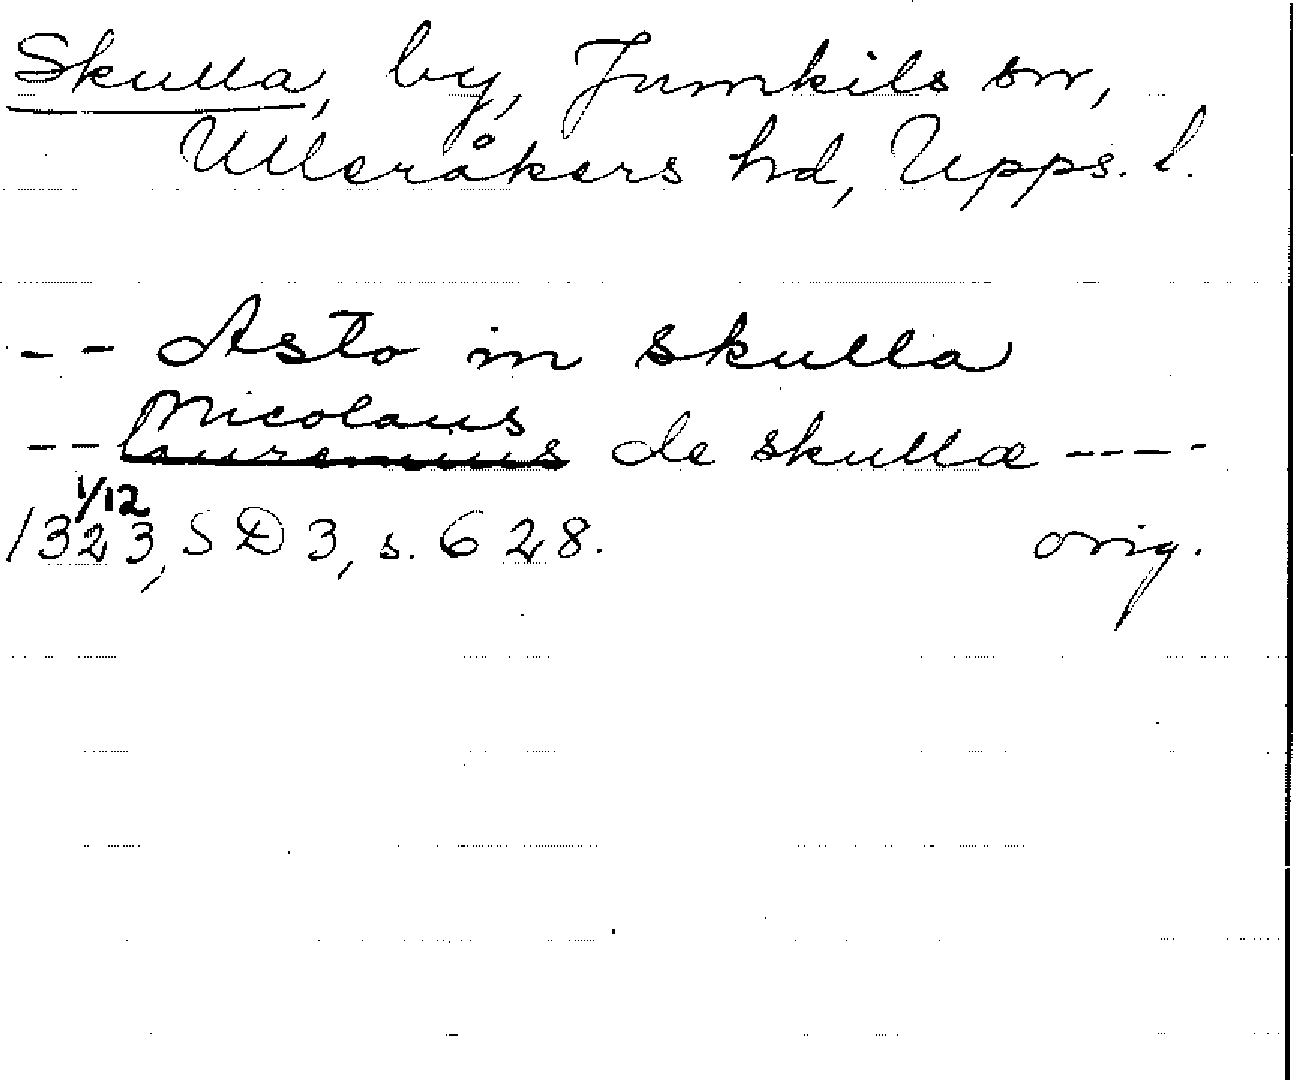 Skulla, by, Jumkils sn,
Ulleråkers hd, Upps. l.
-- Asto in skulla
Nicolaus
-- laurencius de skulla ----
1/12
1323, SD 3, s. 628. orig.